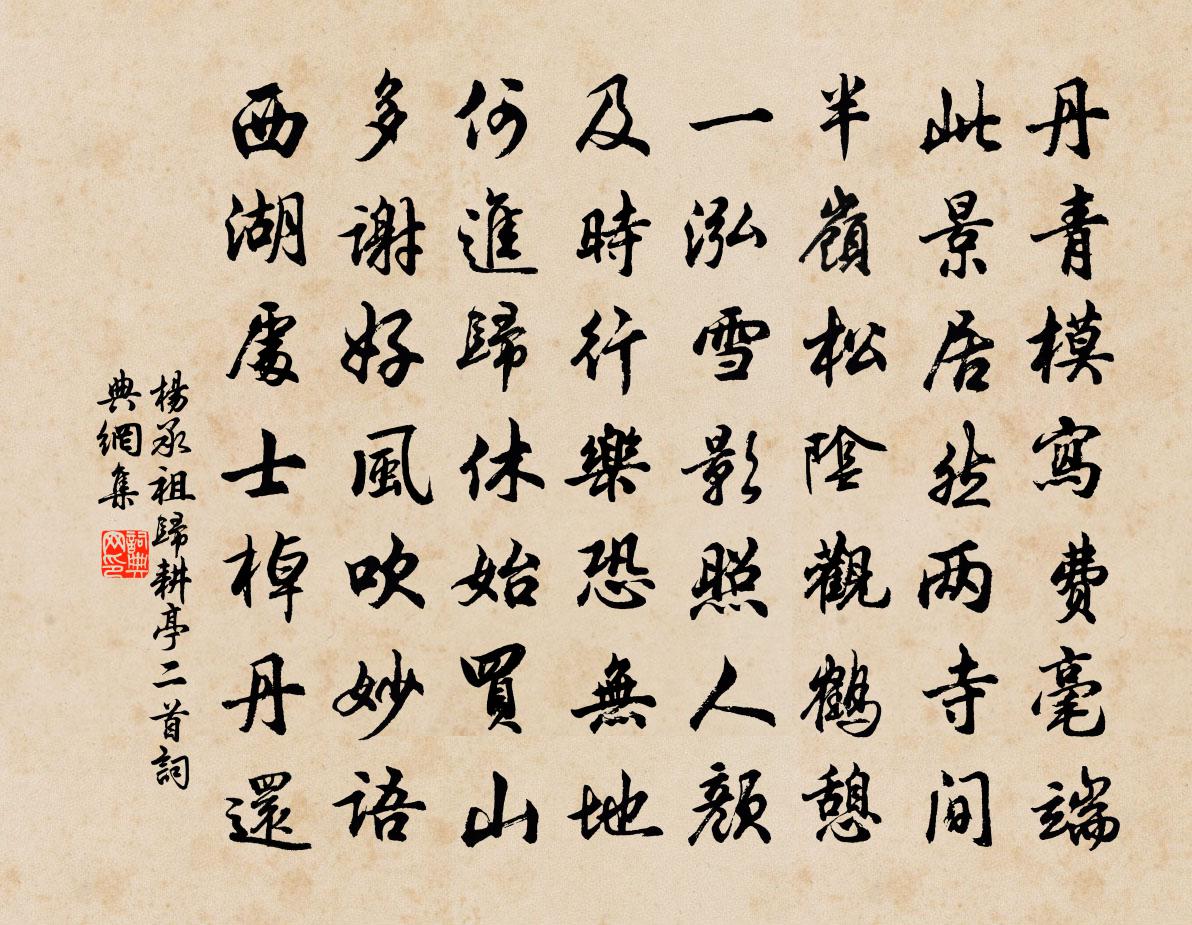 丹青模寫費毫端
此景居然两寺間
半嶺松陰觀鶴憩
一泓雪影照人顏
及時行樂恐無地
何進歸休始買山
多謝好風吹妙語
西湖處士棹丹還
楊承祖歸耕亭二首詞
典網集
詞典
网印